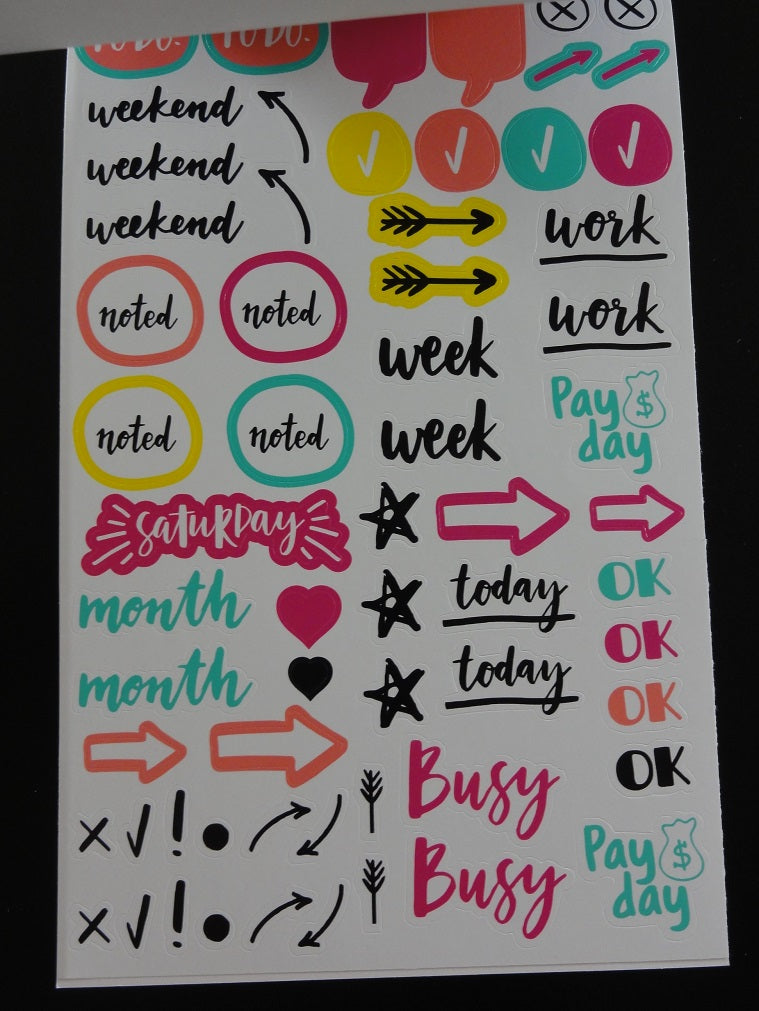 TO DO.
TO DO.
weekend
weekend
weekend
work
work
noted
noted
week
noted
noted
week
Pay $
day
SATURDAY
month
today
OK
OK
month
today
OK
OK
Busy
Busy
Pay $
day